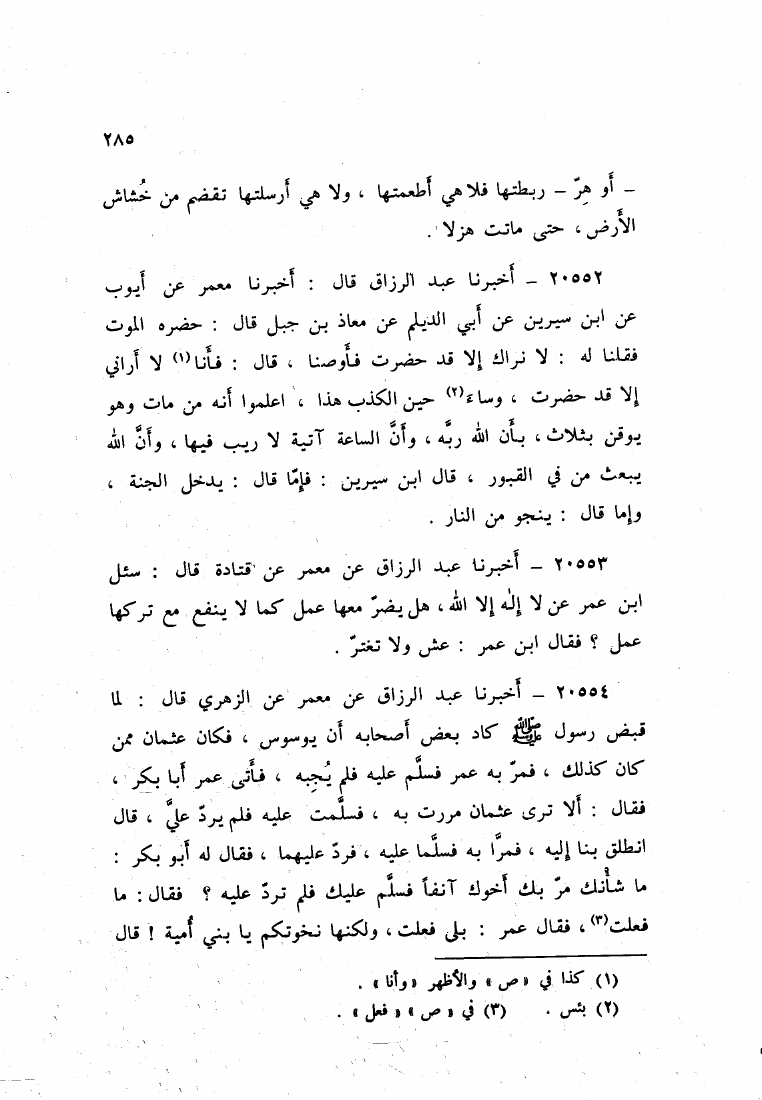 ٢٨٥
ــ أو هِرّ ــ ربطتها فلا هي أطعمتها ، ولا هي أرسلتها تقضم من خُشاش
الأرض ، حتى ماتت هزلا .
٢٠٥٥٢ ــ أخبرنا عبد الرزاق قال : أخبرنا معمر عن أيوب
عن ابن سيرين عن أبي الديلم عن معاذ بن جبل قال : حضره الموت
فقلنا له : لا نراك إلا قد حضرت فأوصنا ، قال : فأنا(١) لا أراني
إلا قد حضرت ، وساء(٢) حين الكذب هذا ، اعلموا أنه من مات وهو
يوقن بثلاث ، بأن الله ربَّه ، وأنَّ الساعة آتية لا ريب فيها ، وأنَّ الله
يبعث من في القبور ، قال ابن سيرين : فإمّا قال : يدخل الجنة ،
وإما قال : ينجو من النار .
٢٠٥٥٣ ــ أخبرنا عبد الرزاق عن معمر عن قتادة قال : سئل
ابن عمر عن لا إلٰه إلا الله ، هل يضرّ معها عمل كما لا ينفع مع تركها
عمل ؟ فقال ابن عمر : عش ولا تغترّ .
٢٠٥٥٤ ــ أخبرنا عبد الرزاق عن معمر عن الزهري قال : لما
قبض رسول ﷺ كاد بعض أصحابه أن يوسوس ، فكان عثمان ممن
كان كذلك ، فمرّ به عمر فسلَّم عليه فلم يُجبه ، فأتى عمر أبا بكر ،
فقال : ألا ترى عثمان مررت به ، فسلَّمت عليه فلم يردّ عليَّ ، قال
انطلق بنا إليه ، فمرَّا به فسلَّما عليه ، فردّ عليهما ، فقال له أبو بكر :
ما شأنك مرّ بك أخوك آنفاً فسلَّم عليك فلم تردّ عليه ؟ فقال : ما
فعلت(٣) ، فقال عمر : بلى فعلت ، ولكنها نخوتكم يا بني أُمية ! قال
(١) كذا في « ص » والأظهر « وأنا » .
(٢) بئس . (٣) في « ص » « فعل » .